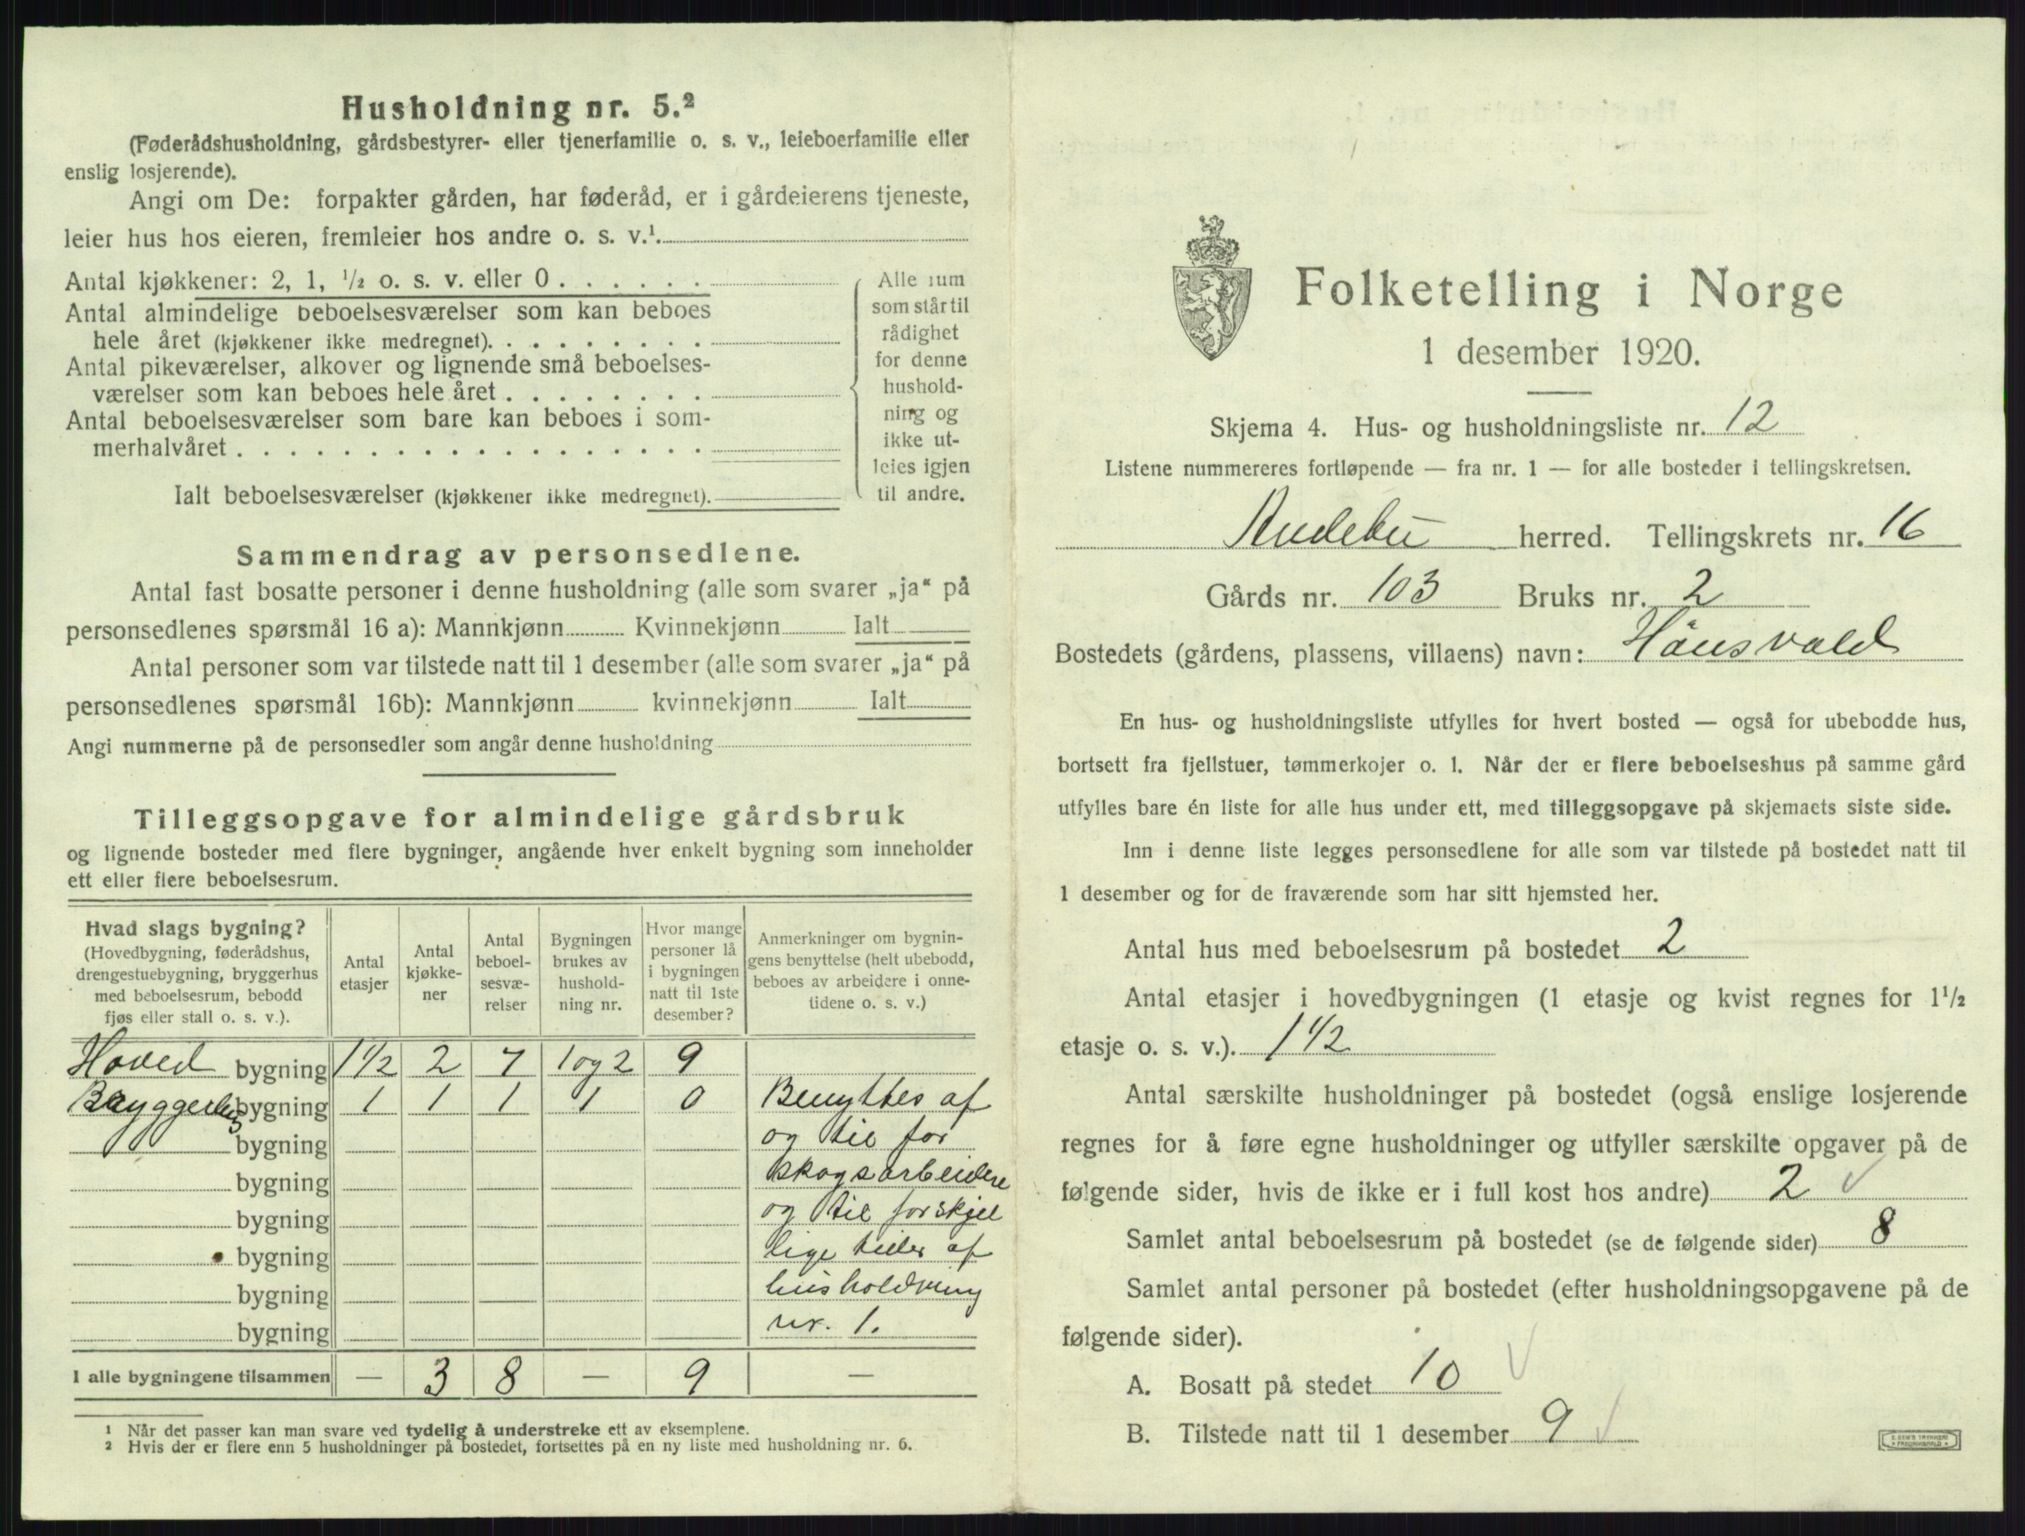 Husholdning nr. 5.²
(Føderådshusholdning, gårdsbestyrer- eller tjenerfamilie o. s. v., leieboerfamilie eller
enslig losjerende).
Angi om De: forpakter gården, har føderåd, er i gårdeierens tjeneste,
leier hus hos eieren, fremleier hos andre o. s. v.¹.
Antal kjøkkener: 2, 1, ½ o. s. v. eller 0 . . . . . .
Antal almindelige beboelsesværelser som kan beboes
hele året (kjøkkener ikke medregnet). . . . . . . .
Antal pikeværelser, alkover og lignende små beboelses-
værelser som kan beboes hele året . . . . . . . .
Antal beboelsesværelser som bare kan beboes i som-
merhalvåret . . . . . . . . . . . . . . . . . .
Ialt beboelsesværelser (kjøkkener ikke medregnet).
Alle rum
som står til
rådighet
for denne
hushold-
ning og
ikke ut-
leies igjen
til andre.
Sammendrag av personsedlene.
Antal fast bosatte personer i denne husholdning (alle som svarer „ja“ på
personsedlenes spørsmål 16 a): Mannkjønn Kvinnekjønn Ialt
Antal personer som var tilstede natt til 1 desember (alle som svarer „ja“ på
personsedlenes spørsmål 16b): Mannkjønn kvinnekjønn Ialt
Angi nummerne på de personsedler som angår denne husholdning
Tilleggsopgave for almindelige gårdsbruk
og lignende bosteder med flere bygninger, angående hver enkelt bygning som inneholder
ett eller flere beboelsesrum.
Hvad slags bygning?
(Hovedbygning, føderådshus,
drengestuebygning, bryggerhus
med beboelsesrum, bebodd
fjøs eller stall o. s. v.).
Antal
etasjer
Antal
kjøkke-
ner
Antal
beboel-
sesvæ-
relser
Bygningen
brukes av
hushold-
ning nr.
Hvor mange
personer lå
i bygningen
natt til 1ste
desember?
Anmerkninger om bygnin-
gens benyttelse (helt ubebodd,
beboes av arbeidere i onne-
tidene o. s. v.)
Hoved bygning 1½ 2 7 1og2 9
Bryggerhus bygning 1 1 1 1 0 Benyttes af
bygning og til for
bygning skogsarbeidere
bygning og til forskjel
bygning lige tider af
bygning husholdning
bygning nr. 1.
I alle bygningene tilsammen — 3 8 — 9 —
¹ Når det passer kan man svare ved tydelig å understreke ett av eksemplene.
² Hvis der er flere enn 5 husholdninger på bostedet, fortsettes på en ny liste med husholdning nr. 6.
Folketelling i Norge
1 desember 1920.
Skjema 4. Hus- og husholdningsliste nr. 12
Listene nummereres fortløpende — fra nr. 1 — for alle bosteder i tellingskretsen.
Andebu herred. Tellingskrets nr. 16
Gårds nr. 103 Bruks nr. 2
Bostedets (gårdens, plassens, villaens) navn: Hånsvald
En hus- og husholdningsliste utfylles for hvert bosted — også for ubebodde hus,
bortsett fra fjellstuer, tømmerkojer o. l. Når der er flere beboelseshus på samme gård
utfylles bare én liste for alle hus under ett, med tilleggsopgave på skjemaets siste side.
Inn i denne liste legges personsedlene for alle som var tilstede på bostedet natt til
1 desember og for de fraværende som har sitt hjemsted her.
Antal hus med beboelsesrum på bostedet 2
Antal etasjer i hovedbygningen (1 etasje og kvist regnes for 1½
etasje o. s. v.). 1½
Antal særskilte husholdninger på bostedet (også enslige losjerende
regnes for å føre egne husholdninger og utfyller særskilte opgaver på de
følgende sider, hvis de ikke er i full kost hos andre) 2 ✓
Samlet antal beboelsesrum på bostedet (se de følgende sider) 8
Samlet antal personer på bostedet (efter husholdningsopgavene på de
følgende sider).
A. Bosatt på stedet 10 ✓
B. Tilstede natt til 1 desember 9 ✓